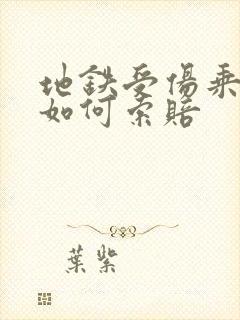 地鉄受傷乘
如何索賠
葉紫